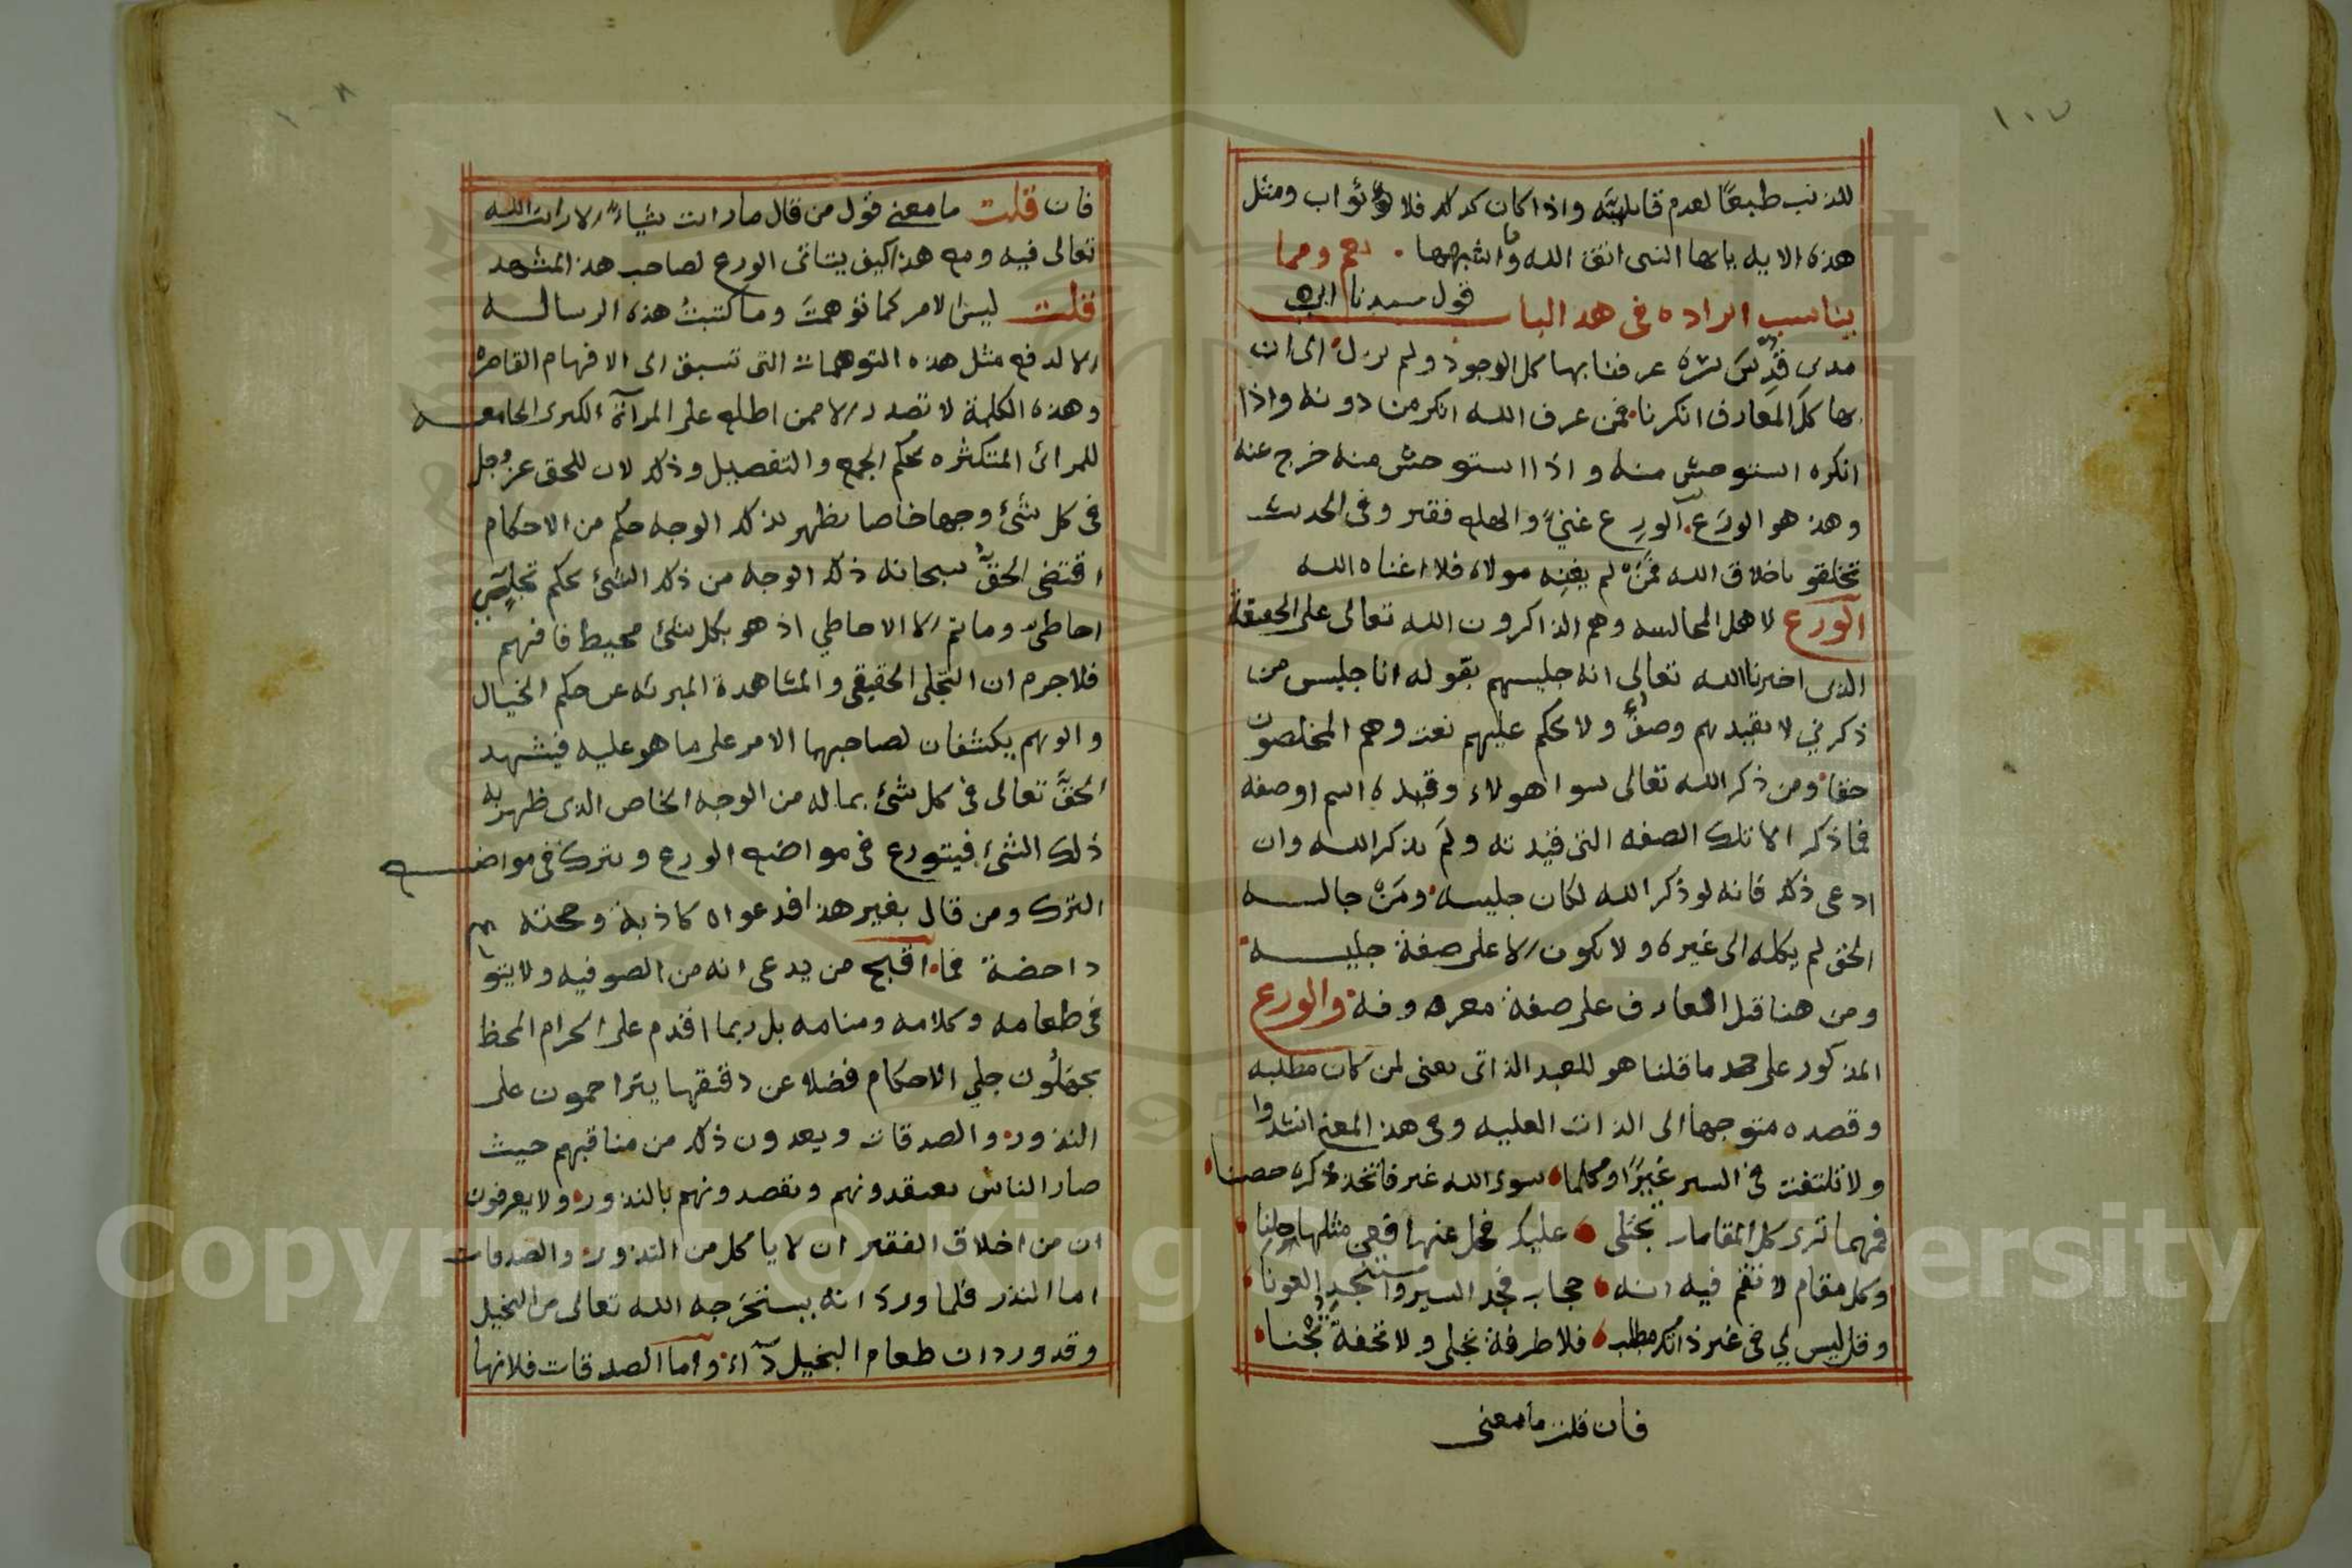 ١٠٧
للذنب طبعًا لعدم قابليته واذا كان كذلك فلا ثواب ومثل
هذه الايه يا يها النبى اتق الله وما اشبهها . ومما
يناسب ايراده فى هذ الباب قول سيدنا ابى
مدين قدس سره عرفنا بها كل الوجود ولم نزل الى ان
بها كل المعارف انكرنا فمن عرف الله انكر من دونه واذا
انكره استوحش منه واذا استوحش منه خرج عنه
وهذ هو الورَع الورِع غني والهلع فقير وفى الحديث
تخلقو باخلاق الله فمن لم يغنِه مولاه فلا اغناه الله
الورع لاهل المجالسه وهم الذاكرون الله تعالى على الحقيقة
الذى اخبرنا الله تعالى انه جليسهم بقوله انا جليس من
ذكرني لا يقيدهم وصفٌ ولا يحكم عليهم نعت وهم المخلصون
حقا ومن ذكر الله تعالى سوا هولاء وقيده اسم او صفه
فما ذكر الا تلك الصفه التى قيدته ولم يذكر الله وان
ادعى ذلك فانه لو ذكر الله لكان جليسه ومَن جالسه
الحق لم يكله الى غيره ولا يكون الا على صفة جليسه
ومن هنا قيل العارف على صفة معروفه والورع
المذكور على حد ما قلنا هو للعبد الذاتى يعنى لمن كان مطلبه
وقصده متوجها الى الذات العليه وفى هذ المعنى انشدوا
ولا تلتفت فى السير غيرًا وكلما سوى الله غير فاتخذ ذكره حصنا
فمهما ترى كل المقامات تجتلى عليك فحل عنها فعن مثلها حلنا
وكل مقام لا تقم فيه انه حجاب فجد السير واستنجد العونا
وقل ليس لي فى غير ذاتك مطلب فلا طرفة تجلى ولا تحفة تجنا
فان قلت ما معنى
١٠٨
فان قلت ما معنى قول من قال ما رايت شياءً الا رايت الله
تعالى فيه ومع هذا كيف يتاتى الورع لصاحب هذ المشهد
قلت ليس الامر كما توهمتَ وما كتبتُ هذه الرساله
الا لدفع مثل هذه التوهمات التى تسبق الى الافهام القاصره
وهذه الكلمة لا تصدر الا ممن اطلع على المرآة الكبرى الجامعه
للمرائ المتكثره بحكم الجمع والتفصيل وذلك لان للحق عز وجل
فى كل شئ وجها خاصا يظهر بذلك الوجه حكم من الاحكام
اقتضى الحقّ سبحانه ذلك الوجه من ذلك الشئ بحكم تجلٍّ
احاطى وما ثم الا الاحاطي اذ هو بكل شئ محيط فافهم
فلا جرم ان التجلى الحقيقى والمشاهدة المبرئه عن حكم الخيال
والوهم يكشفان لصاحبهما الامر على ما هو عليه فيشهد
الحقَّ تعالى فى كل شئ بما له من الوجه الخاص الذى ظهر به
ذلك الشئ فيتورع فى مواضع الورع ويترك فى مواضع
الترك ومن قال بغير هذا فدعواه كاذبة وحجته
داحضة فما اقبح من يدعى انه من الصوفيه ولا يتورع
فى طعامه وكلامه ومنامه بل ربما اقدم على الحرام المحظ
يجهلُون جلي الاحكام فضلا عن دقيقها يتزاحمون على
النذور والصدقات ويعدون ذلك من مناقبهم حيث
صار الناس يعتقدونهم ويقصدونهم بالنذور ولا يعرفون
ان من اخلاق الفقير ان لا ياكل من النذور والصدقات
اما النذر فلما ورد انه يستخرجه الله تعالى من البخيل
وقد ورد ان طعام البخيل دآء واما الصدقات فلانها